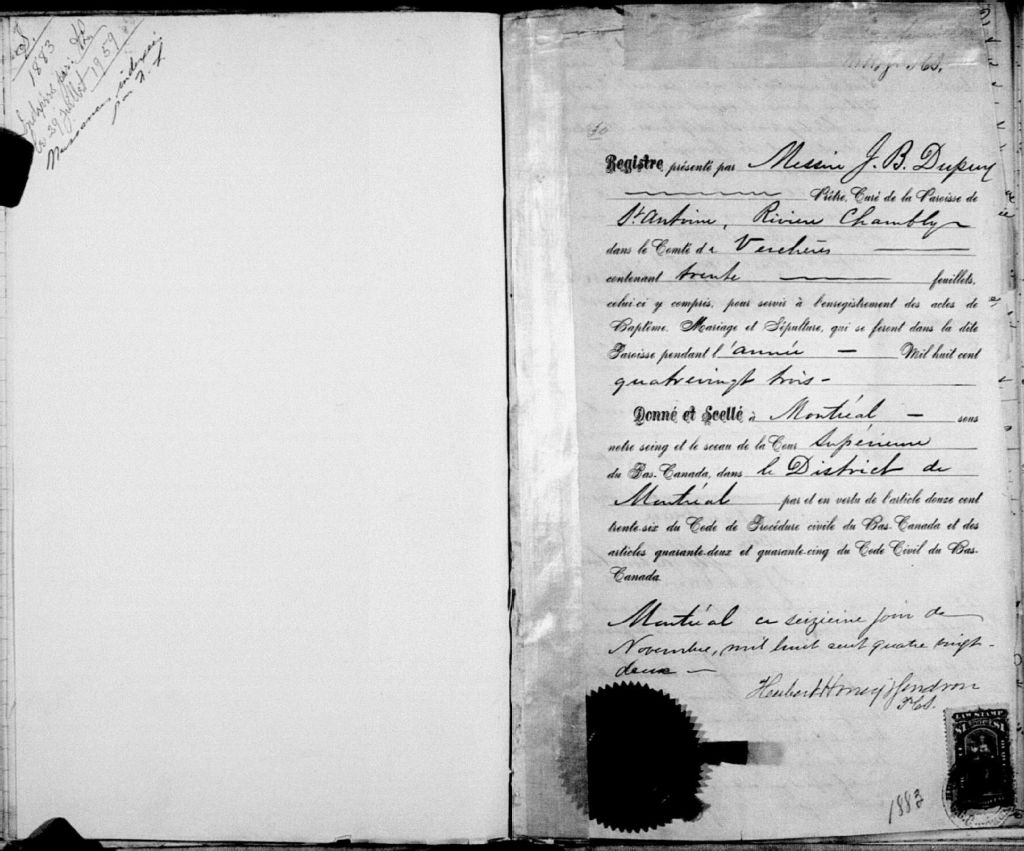 1883
29 juillet 1959
Registre, présenté par Messire J. B. Dupuy
Prêtre, Curé de la Paroisse de
St Antoine, Riviere Chambly
dans le Comté de Verchères
contenant trente feuillets,
celui-ci y compris, pour servir à l'enregistrement des actes de
Baptême, Mariage et Sépulture, qui se feront dans la dite
Paroisse pendant l'année — Mil huit cent
quatrevingt trois -
Donné et Scellé à Montréal — sous
notre seing et le sceau de la Cour Supérieure
du Bas-Canada, dans le District de
Montréal par et en vertu de l'article douze cent
trente-six du Code de Procédure civile du Bas-Canada et des
articles quarante-deux et quarante-cinq du Code Civil du Bas-
Canada
Montréal ce seizieme jour de
Novembre, mil huit cent quatre vingt-
deux —
LAW STAMP
1883